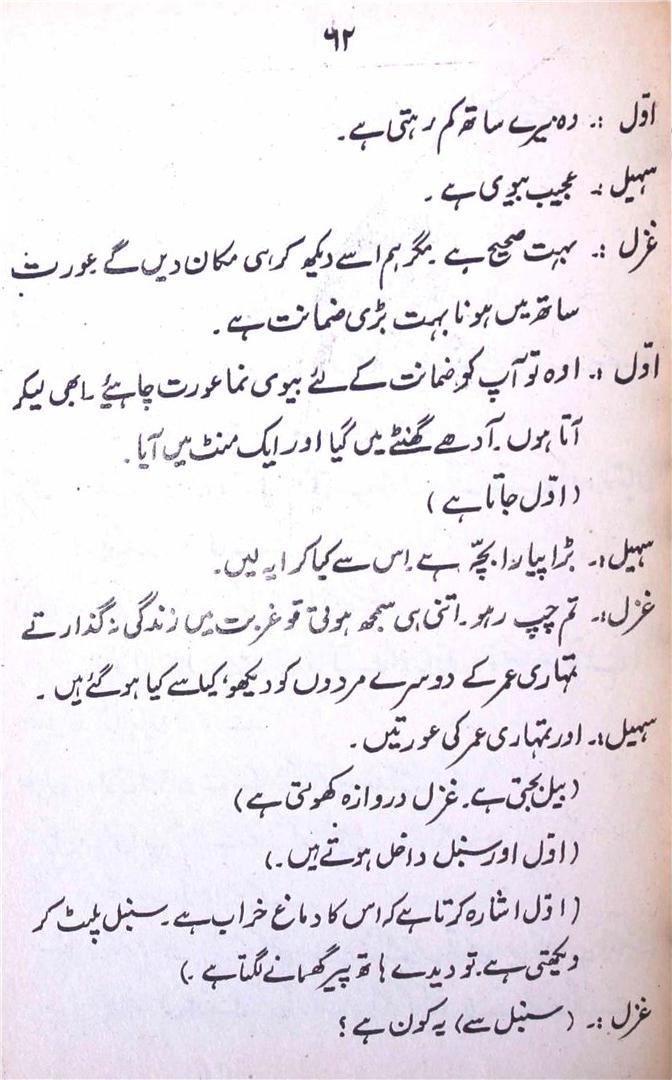 ۶۲
اوّل :۔ وہ میرے ساتھ کم رہتی ہے۔
سہیل :۔ عجیب بیوی ہے ۔
غزل :۔ بہت صحیح ہے ۔ مگر ہم اسے دیکھ کر ہی مکان دیں گے عورت
ساتھ میں ہونا بہت بڑی ضمانت ہے ۔
اوّل :۔ اوہ تو آپ کو ضمانت کے لئے بیوی نما عورت چاہیئے ۔ ابھی لیکر
آتا ہوں ۔ آدھے گھنٹے میں گیا اور ایک منٹ میں آیا۔
(اوّل جاتا ہے )
سہیل :۔ بڑا پیارا بچّہ ہے ۔ اس سے کیا کرایہ لیں۔
غزل :۔ تم چپ رہو ۔ اتنی ہی سمجھ ہوتی تو غربت میں زندگی نہ گذارتے
تمہاری عمر کے دوسرے مردوں کو دیکھو، کیا سے کیا ہو گئے ہیں ۔
سہیل :۔ اور تمہاری عمر کی عورتیں ۔
(بیل بجتی ہے ۔ غزل دروازہ کھولتی ہے)
(اوّل اور سنبل داخل ہوتے ہیں ۔)
(اوّل اشارہ کرتا ہے کہ اس کا دماغ خراب ہے ۔ سنبل پلٹ کر
دیکھتی ہے ۔ تو دیدے ہاتھ پیر گھمانے لگتا ہے ۔)
غزل :۔ (سنبل سے) یہ کون ہے ؟